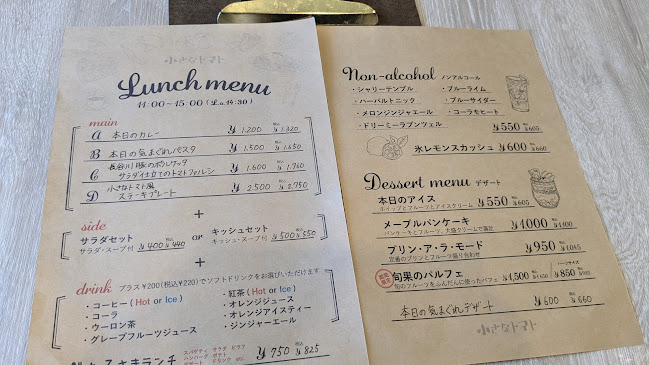 小さなトマト
Lunch menu
11:00~15:00 (L.o 14:30)
main
A 本日のカレー ¥1,200 税込 ¥1,320
B 本日の気まぐれパスタ ¥1,500 税込 ¥1,650
C 長谷川豚のポルケッタ
サラダ仕立てのトマトファルシ ¥1,600 税込 ¥1,760
D 小さなトマト風
ステーキプレート ¥2,500 税込 ¥2,750
+
side
サラダセット or キッシュセット
サラダ・スープ付 ¥400 ¥440 キッシュ・スープ付 ¥500 ¥550
+
drink プラス¥200(税込¥220)でソフトドリンクをお選びいただけます
・コーヒー(Hot or Ice) ・紅茶(Hot or Ice)
・コーラ ・オレンジジュース
・ウーロン茶 ・オレンジアイスティー
・グレープフルーツジュース ・ジンジャーエール
スパゲティ サラダ ピラフ
ハンバーグ ポテト
デザート ドリンク
ランチ ¥750 税込 ¥825
Non-alcohol ノンアルコール
・シャリーテンプル ・ブルーライム
・ハーバルトニック ・ブルーサイダー
・メロンジンジャエール ・コーラモヒート
・ドリーミーラプンツェル ¥550 税込 ¥605
氷レモンスカッシュ ¥600 税込 ¥660
Dessert menu デザート
本日のアイス ¥550 税込 ¥605
ホイップとフルーツとアイスクリーム
メープルパンケーキ ¥1,000 税込 ¥1,100
パンケーキとフルーツ、大盛クリームで満足
プリン・ア・ラ・モード ¥950 税込 ¥1,045
定番のプリンとフルーツ盛り合わせ
旬果のパルフェ ¥1,500 税込 ¥1,650 ハーフサイズ ¥850 税込 ¥935
旬のフルーツをふんだんに使ったパフェ
本日の気まぐれデザート ¥600 税込 ¥660
小さなトマト